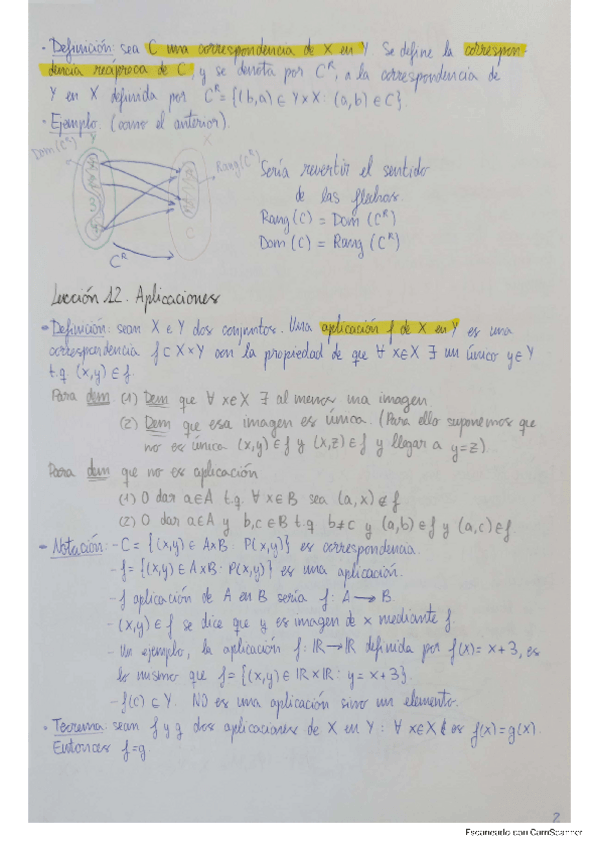 · Definición: sea C una correspondencia de X en Y Se define la correspon-
dencia recíproca de C, y se denota por Cᴿ, a la correspondencia de
Y en X definida por Cᴿ = {(b,a) ∈ Y×X : (a,b) ∈ C}.
· Ejemplo: (como el anterior).
Dom(Cᴿ)
Y
X
Rang(Cᴿ)
Cᴿ
Sería revertir el sentido
de las flechas.
Rang(C) = Dom(Cᴿ)
Dom(C) = Rang(Cᴿ)
Lección 12. Aplicaciones
· Definición: sean X e Y dos conjuntos. Una aplicación f de X en Y es una
correspondencia f ⊂ X×Y con la propiedad de que ∀ x∈X ∃ un único y∈Y
t.q (x,y) ∈ f.
Para dem. (1) Dem que ∀ x∈X ∃ al menos una imagen
(2) Dem que esa imagen es única. (Para ello suponemos que
no es única (x,y)∈f y (x,z)∈f y llegar a y=z).
Para dem que no es aplicación
(1) O dar a∈A t.q ∀ x∈B sea (a,x)∉f.
(2) O dar a∈A y b,c∈B t.q b≠c y (a,b)∈f y (a,c)∈f.
· Notación: - C = {(x,y) ∈ A×B : P(x,y)} es correspondencia.
- f = {(x,y) ∈ A×B : P(x,y)} es una aplicación.
- f aplicación de A en B sería f: A → B.
- (x,y) ∈ f se dice que y es imagen de x mediante f.
- Un ejemplo, la aplicación f: ℝ→ℝ definida por f(x) = x+3, es
lo mismo que f = {(x,y) ∈ ℝ×ℝ : y = x+3}.
- f(c) ⊂ Y. NO es una aplicación sino un elemento.
· Teorema: sean f y g dos aplicaciones de X en Y : ∀ x∈X es f(x)=g(x).
Entonces f=g
2
Escaneado con CamScanner